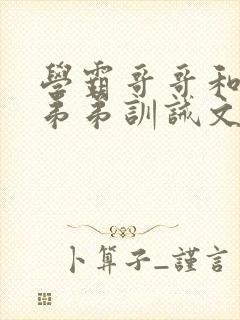 學霸哥哥和
弟弟訓誡文
卜算子_謹言